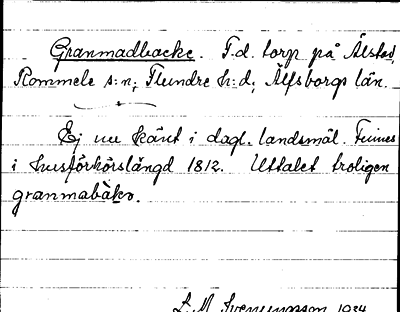 Granmadbacke. F.d. torp på Älstad,
Rommele s:n; Flundre h:d; Älfsborgs län.
Ej nu känt i dagl. landsmål. Finnes
i husförhörslängd 1812. Uttalet troligen
granmabàkə.
1924